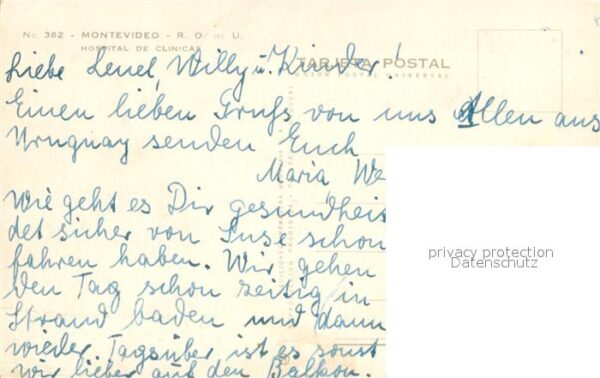 No. 362 - MONTEVIDEO - R. O. DEL U.
HOSPITAL DE CLINICAS
TARJETA POSTAL
UNION POSTAL UNIVERSAL
Liebe Lenel, Willy u. Kinder!
Einen lieben Gruß von uns Allen aus
Uruguay senden Euch
Maria We
Wie geht es Dir gesundheit
det sicher von Suse schon
fahren haben. Wir gehen
den Tag schon zeitig in
Strand baden und dann
wieder. Tagsüber ist es sonst
wir lieber auf den Balkon.
privacy protection
Datenschutz